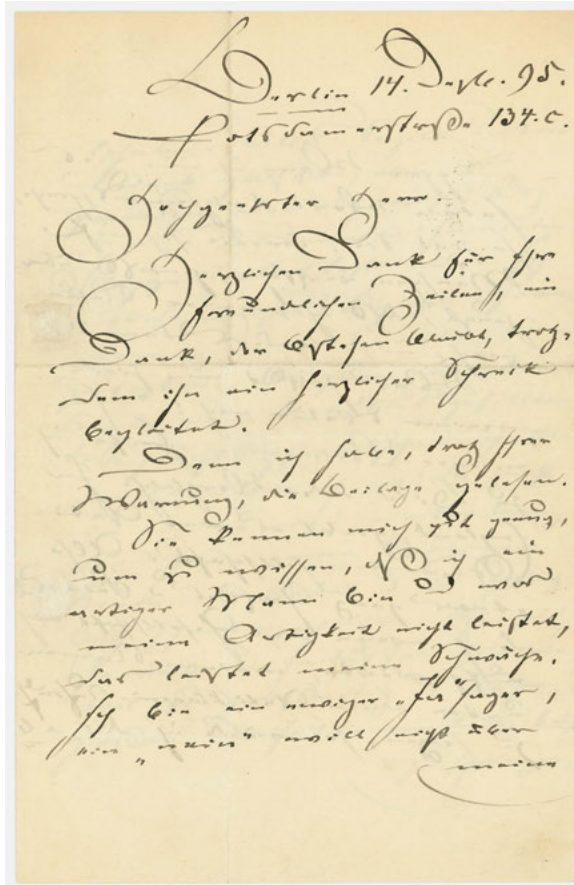 Berlin 14. Dezb. 95.
Potsdamerstraße 134. c.
Hochgeehrter Herr.
Herzlichen Dank für Ihre
freundlichen Zeilen, ein
Dank, der bestehen bleibt, trotz-
dem ihn ein herzlicher Schreck
begleitet.
Denn ich habe, trotz Ihrer
Warnung, die Beilage gelesen.
Sie kennen mich gut genug,
um zu wissen, daß ich ein
artiger Mann bin u was
meine Artigkeit nicht leistet,
das leistet meine Schwäche.
Ich bin ein ewiger „Ja" sager,
ein „nein" will nicht über
meine